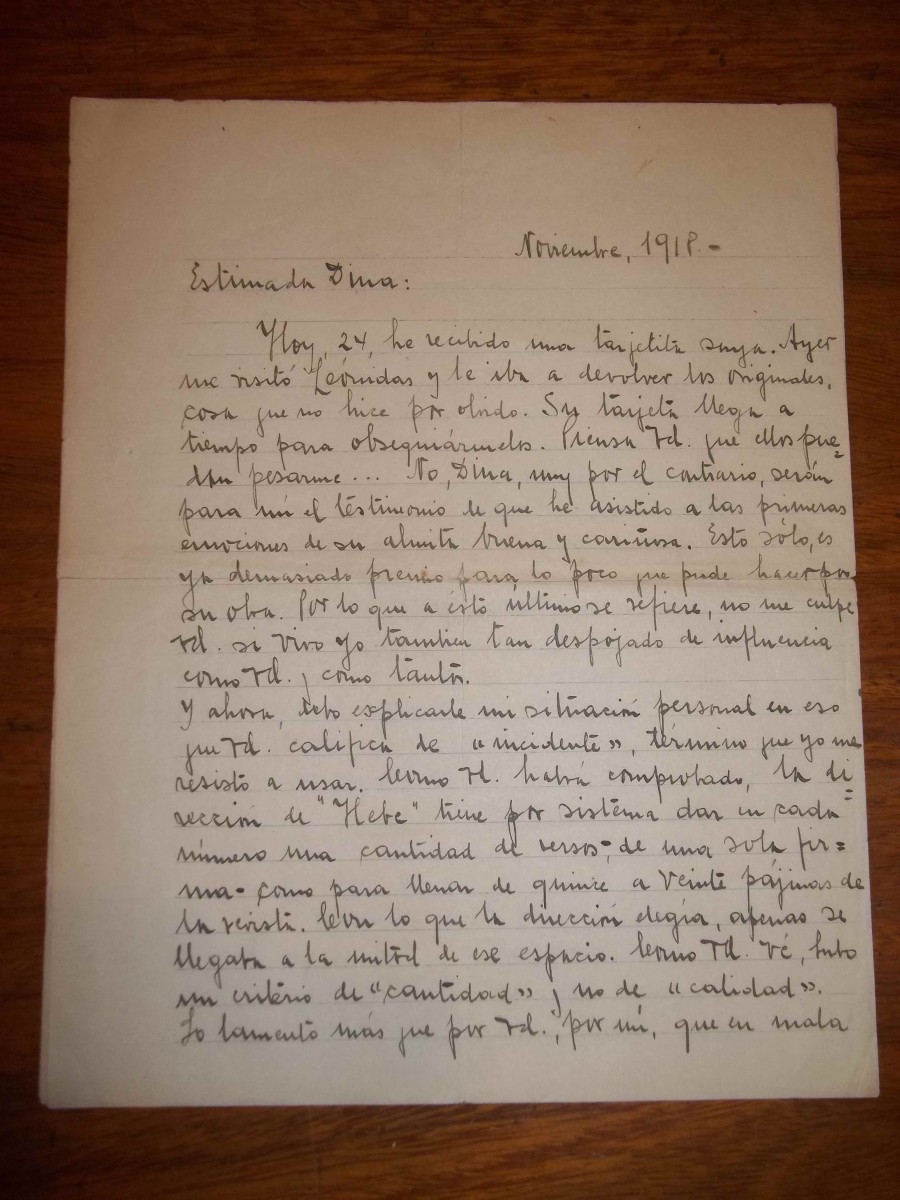 Noviembre, 1918.-
Estimada Dina:
Hoy, 24, he recibido una tarjetita suya. Ayer
me visitó Leónidas y le iba a devolver los originales,
cosa que no hice por olvido. Su tarjeta llega a
tiempo para obsequiármelos. Piensa Vd. que ellos pue=
dan pesarme... No, Dina, muy por el contrario, serán
para mí el testimonio de que he asistido a las primeras
emociones de su almita buena y cariñosa. Esto sólo, es
ya demasiado premio para lo poco que pude hacer por
su obra. Por lo que a ésto último se refiere, no me culpe
Vd. si vivo yo tambien tan despojado de influencia
como Vd. y como tantos.
Y ahora, debo explicarle mi situación personal en eso
que Vd. califica de "incidente", término que yo me
resisto a usar. Como Vd. habrá comprobado, la di=
rección de "Hebe" tiene por sistema dar en cada
número una cantidad de versos -, de una sola fir=
ma - como para llenar de quince a veinte pájinas de
la revista. Con lo que la dirección elegía, apenas se
llegaba a la mitad de ese espacio. Como Vd. vé, hubo
un critério de "cantidad" y no de "calidad".
Lo lamento más que por Vd., por mí, que en mala